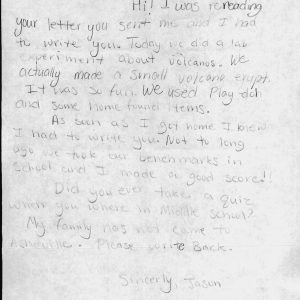 Hi! I was rereading
your letter you sent me and I had
to write you. Today we did a lab
experiment about volcanos. We
actually made a small volcano erupt.
It was so fun. We used Play doh
and some home found items.
As soon as I got home I knew
I had to write you. Not to long
ago we took our benchmarks in
school and I made a good score!!
Did you ever take a quiz
when you where in Middle school?
My family has not came to
Asheville. Please write back.
Sincerly, Jason